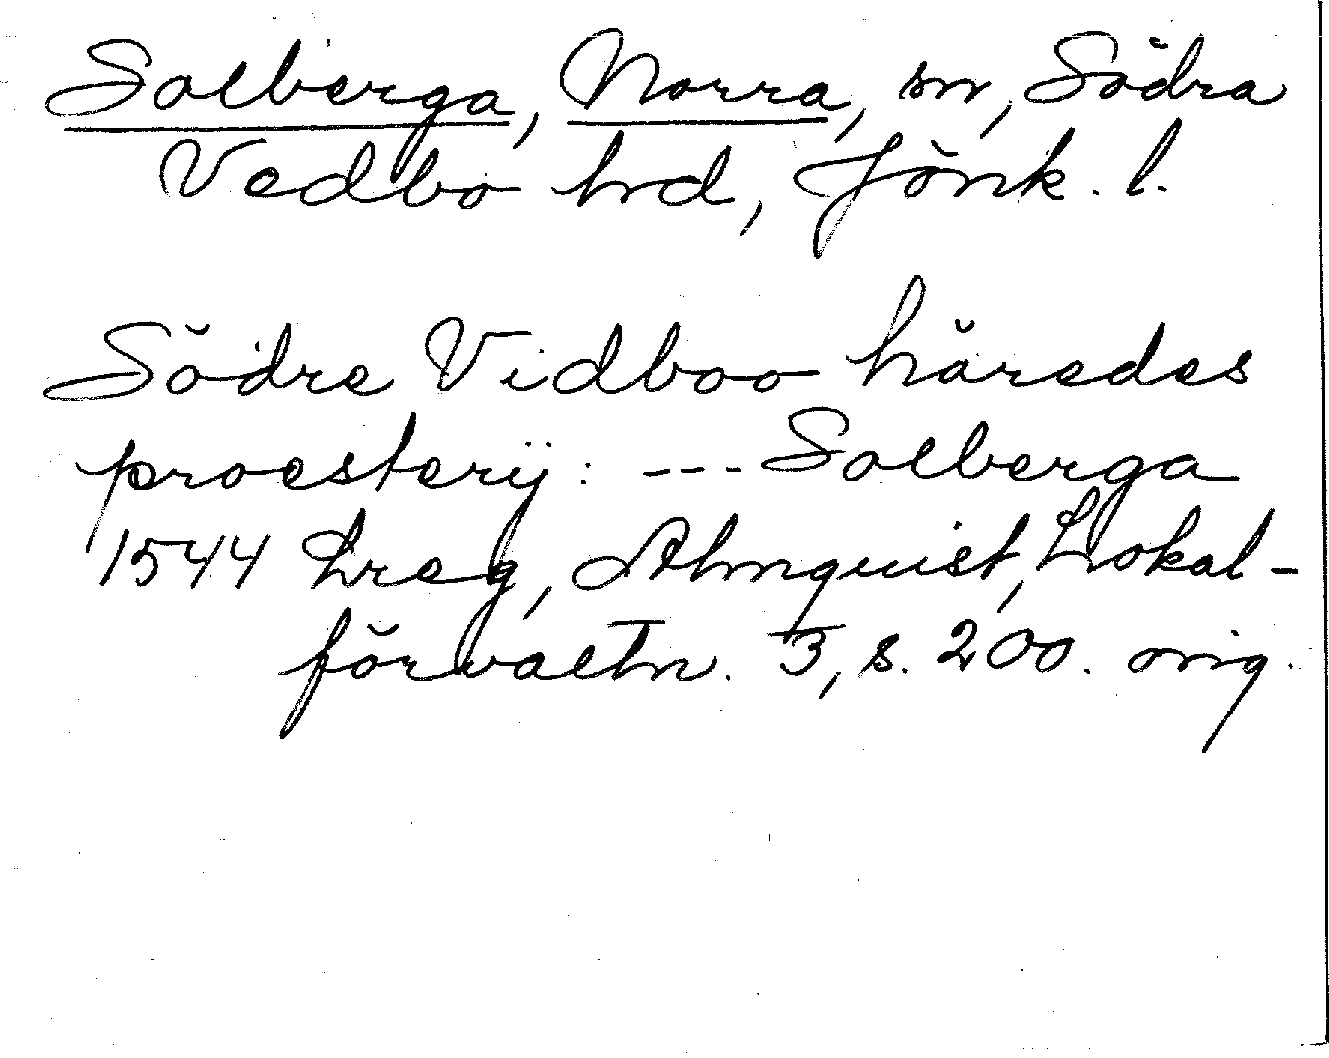 Solberga, Norra, sn, Södra
Vedbo hd, Jönk. l.
Södre Vidboo häredes
proesterij: --- Solberga
1544 Lreg, Almquist, Lokal-
förvaltn. 3, s. 200. orig.